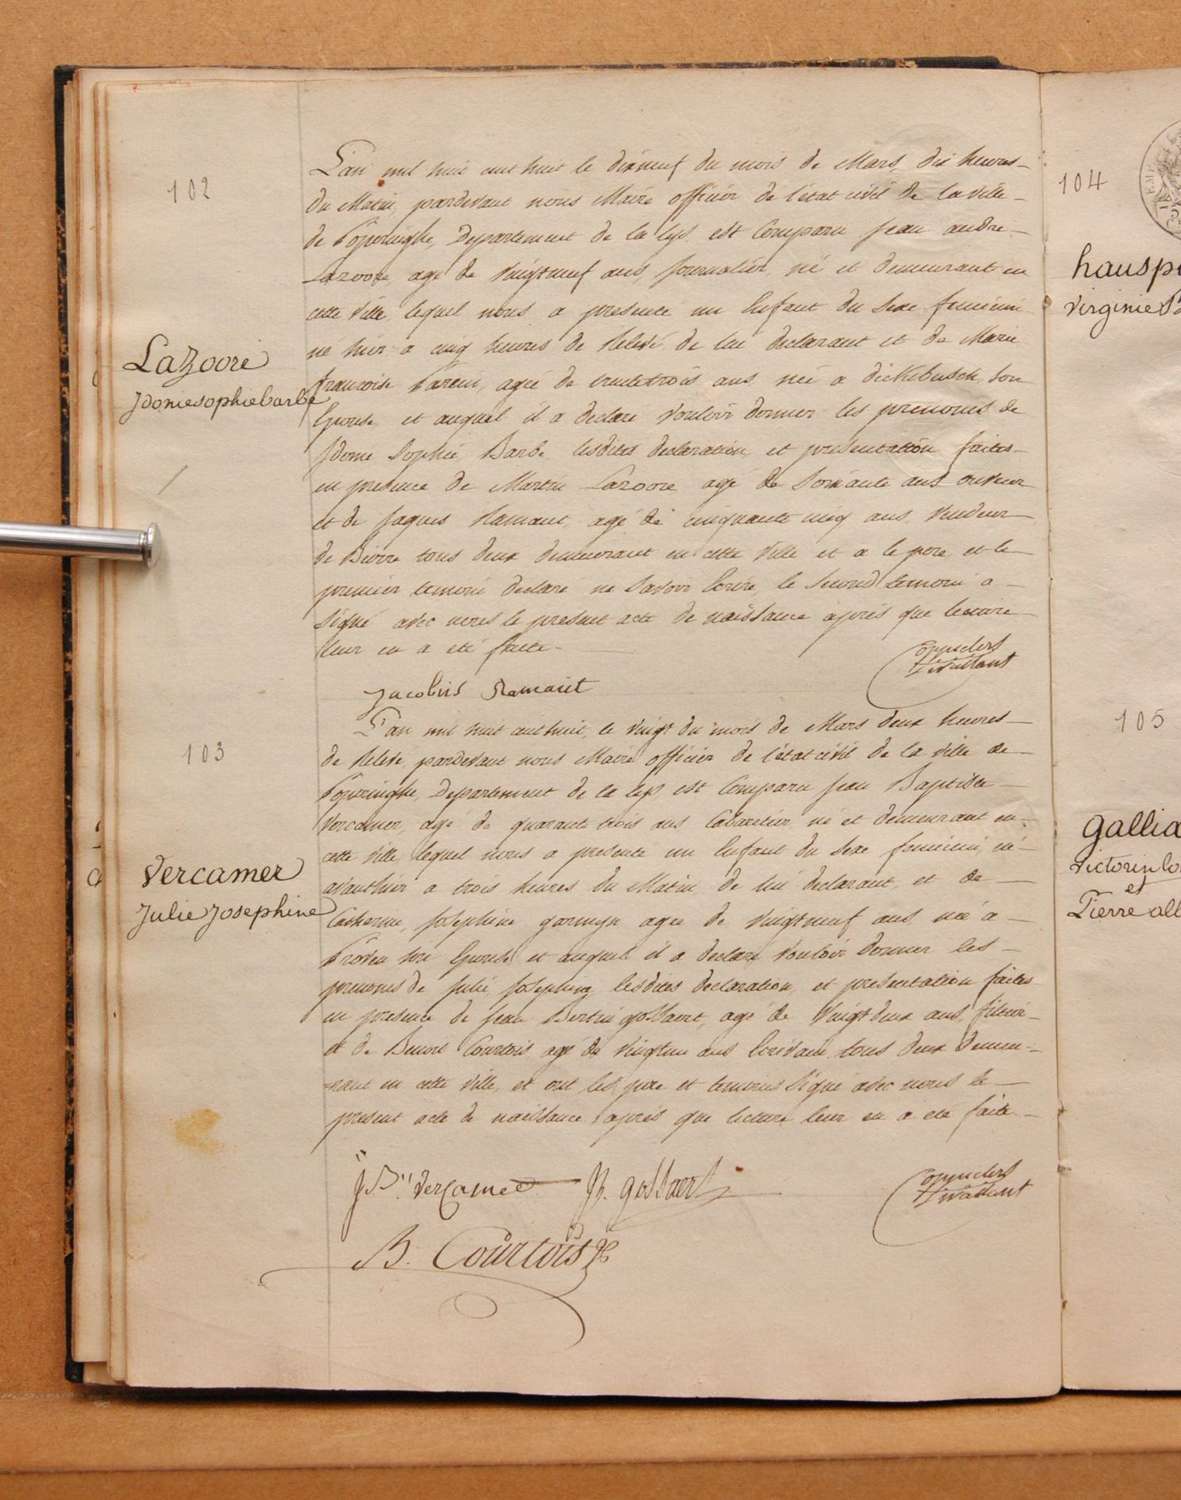 102
L'an mil huit cent huit le dixneuf du mois de Mars, dix heures
du Matin, pardevant nous Maire officier de l'état civil de la ville
de Poperinghe, Departement de la Lys, est Comparu Jean andre
Lazoore agé de vingtneuf ans, Journalier, né et demeurant en
cette ville lequel nous a presenté un Enfant du Sexe feminin
né hier a cinq heures de Relevé de lui declarant et de Marie
francoise Parein, agée de trentetrois ans née a dickebusch Son
Epouse et auquel il a declaré Vouloir donner les prenoms de
Idonie Sophie Barbe, lesdites declaration, et presentation faites
en presence de Martin Lazoore agé de Soixante ans ouvrier
et de Jaques Ramaut, agé de cinquante cinq ans, Vendeur
de Bierre tous deux demeurant en cette Ville et a le pere et le
premier temoin declaré ne Savoir Ecrire, le Second temoin a
Signé avec nous le present acte de naissance aprés que lecture
leur en a été faite.
Lazoore
Idonie sophie barbe
Jacobus Ramaut
103
L'an mil huit cent huit, le vingt du mois de Mars deux heures
de Relevé pardevant nous Maire officier de l'état civil de la ville de
Poperinghe, Departement de la Lys est Comparu Jean Baptiste
Vercamer, agé de quarante trois ans Cabaretier né et demeurant en
cette ville, lequel nous a presenté un Enfant du Sexe feminin, né
avanthier a trois heures du Matin de lui declarant, et de
Catherine Josephine gormyn agée de Vingtneuf ans née a
Proven Son Epouse et auquel il a declaré Vouloir donner les
prenoms de Julie Josephine, lesdites declaration, et presentation faites
en presence de Jean Bertin gossaert, agé de Vingt deux ans
et de Benoit Courtois agé de Vingtun ans tous deux demeu-
rant en cette Ville, et ont les pere et temoins Signé avec nous le
present acte de naissance aprés que lecture leur en a été faite
Vercamer
Julie Josephine
J B. Vercamer JB. gossaert
B. Courtois
104
hausp
virginie
105
gallia
Victorin lo
et
Pierre all